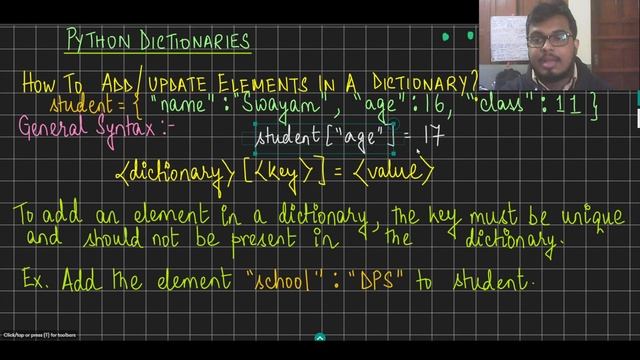 PYTHON DICTIONARIES
HOW TO ADD/UPDATE ELEMENTS IN A DICTIONARY?
student = { "name" : "Swayam", "age" : 16, "class" : 11 }
General Syntax :-
student ["age"] = 17
<dictionary> [<key>] = <value>
To add an element in a dictionary, the key must be unique
and should not be present in the dictionary.
Ex. Add the element "school" : "DPS" to student.
Click/tap or press [T] for toolbars